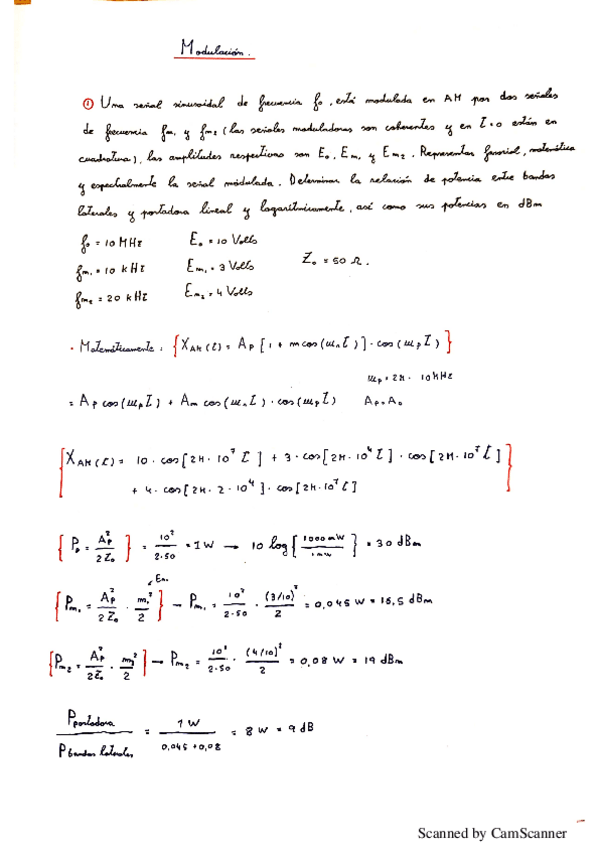 Modulación.
① Una señal sinusoidal de frecuencia fo, está modulada en AM por dos señales
de frecuencia fm1 y fm2 (las señales moduladoras son coherentes y en t=0 están en
cuadratura), las amplitudes respectivas son Eo, Em1 y Em2. Representar fasorial, matemática
y espectralmente la señal modulada. Determinar la relación de potencia entre bandas
laterales y portadora lineal y logarítmicamente, así como sus potencias en dBm
fo = 10 MHz Eo = 10 Volts
Zo = 50 Ω.
fm1 = 10 kHz Em1 = 3 Volts
fm2 = 20 kHz Em2 = 4 Volts
- Matemáticamente: {XAM(t) = Ap [1 + m cos(ωm t)] · cos(ωp t)}
ωp = 2π · 10kHz
= Ap cos(ωp t) + Am cos(ωm t) · cos(ωp t) Ap = Ao
{XAM(t) = 10 · cos[2π · 10⁷ t] + 3 · cos[2π · 10⁴ t] · cos[2π · 10⁷ t]
+ 4 · cos[2π · 2 · 10⁴] · cos[2π · 10⁷ t]}
{Pp = Ap²/2Zo} = 10²/2·50 = 1W → 10 log{1000mW/1mW} = 30 dBm
Em
{Pm1 = Ap²/2Zo · m1²/2} → Pm1 = 10²/2·50 · (3/10)²/2 = 0,045 W = 16,5 dBm
{Pm2 = Ap²/2Zo · m2²/2} → Pm2 = 10²/2·50 · (4/10)²/2 = 0,08 W = 19 dBm
Pportadora/Pbandas laterales = 1W/0,045+0,08 = 8 W = 9 dB
Scanned by CamScanner